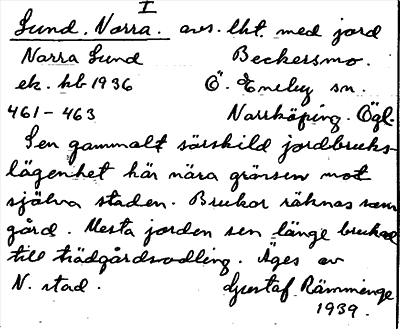 I
Sund, Norra. avs. lht. med jord
Norra Sund Beckersmo.
ek. kb 1936 Ö. Eneby sn.
461-463 Norrköping. Ögl.
Sen gammalt särskild jordbruks-
lägenhet här nära gränsen mot
själva staden. Brukar räknas som
gård. Mesta jorden sen länge brukad
till trädgårdsodling. Äges av
N. stad. Gustaf Rämminge
1939.